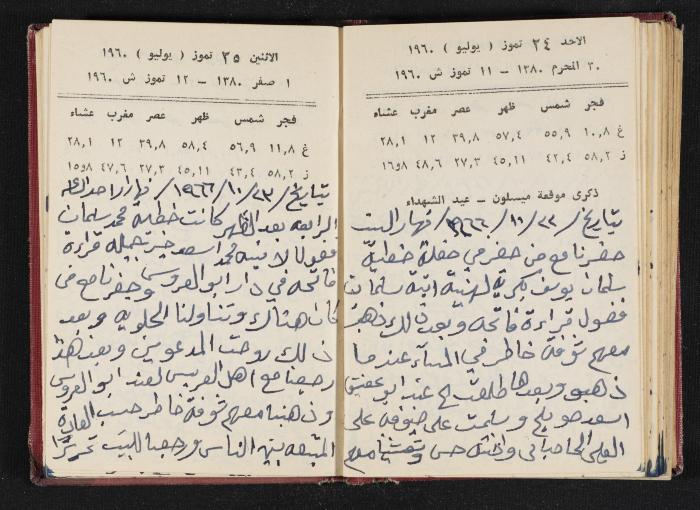 الاحد ٢٤ تموز ( يوليو ) ١٩٦٠
٣٠ المحرم ١٣٨٠ – ١١ تموز ش ١٩٦٠
فجر شمس ظهر عصر مغرب عشاء
غ ١٠,٨ ٥٥,٩ ٥٧,٤ ٣٩,٨ ١٢ ٢٨,١
ز ٥٨,٢ ٤٢,٤ ٤٥,١١ ٢٧,٣ ٤٨,٦ ١٦و٨
ذكرى موقعة ميسلون – عيد الشهداء
بتاريخ / ٢٢ / ١٠ / ١٩٦٦ / نهار السبت
حضرنا مع من حضر في حفلة خطبة
سلمان يوسف بكرية لهنية ابنة سلمان
فضول قراءة فاتحه وبعد ذلك ذهبنا
معهم شوفة خاطر في المساء عندما
ذهبو وبعدها طلعت لح عند ابو عفيف
اسعد صويلح وسلمت على ضيوفه على
العلي الحاصباني وابنته وتمشينا معهم
الاثنين ٢٥ تموز ( يوليو ) ١٩٦٠
١ صفر ١٣٨٠ – ١٢ تموز ش ١٩٦٠
فجر شمس ظهر عصر مغرب عشاء
غ ١١,٨ ٥٦,٩ ٥٨,٤ ٣٩,٨ ١٢ ٢٨,١
ز ٥٨,٢ ٤٣,٤ ٤٥,١١ ٢٧,٣ ٤٧,٦ ١٥و٨
بتاريخ / ٢٣ / ١٠ / ١٩٦٦ / نهار احد
الرابعه بعد الظهر كانت خطبة محمد سلمان
فضول لابنة محمد اسعد خير جميله قراءة
فاتحه في دار ابو العروس وحضر نامع من
كان هناك وتناولنا الحلويه وبعد
ذلك روحت المدعوين وبعد هذا
رجعنا مع اهل العريس لعند ابو العروس
وذهبنا معهم شوفة خاطر حسب العادة
المتبعه بين الناس ورجعنا للبيت